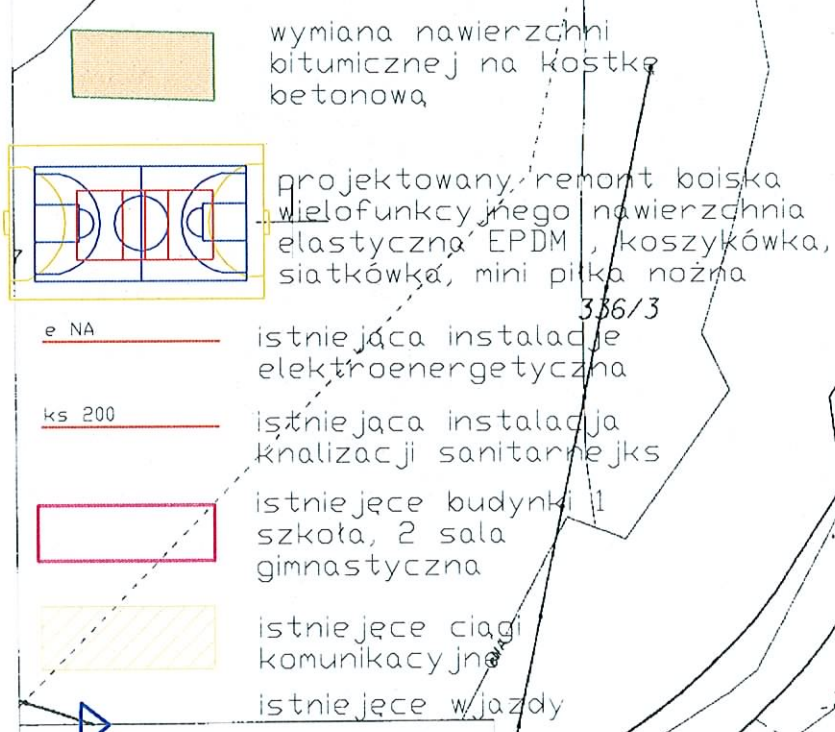 wymiana nawierzchni
bitumicznej na kostkę
betonową
projektowany remont boiska
wielofunkcyjnego nawierzchnia
elastyczna EPDM , koszykówka,
siatkówka, mini piłka nożna
7
336/3
e NA
istniejąca instalacje
elektroenergetyczna
ks 200
istniejąca instalacja
knalizacji sanitarnejks
istniejęce budynki 1
szkoła, 2 sala
gimnastyczna
istniejęce ciągi
komunikacyjne
eNA
istniejęce wjazdy